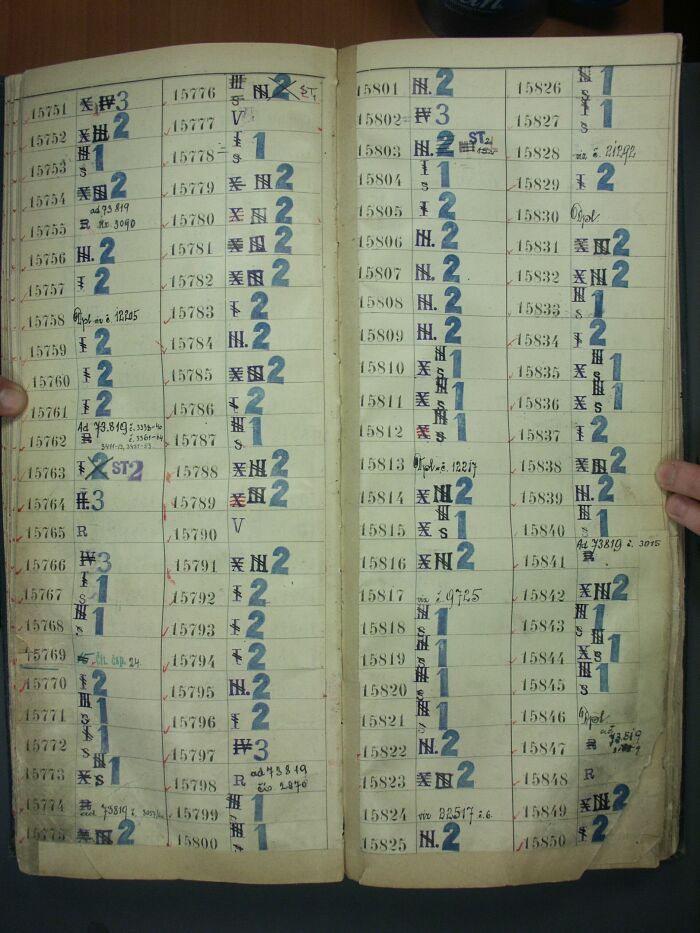 15751 X IV 3
15752 X III 2
15753 III s 1
15754 X III 2
15755 R ad 73819 3090
15756 III. 2
15757 I 2
15758 Dpl viz č. 12205
15759 I 2
15760 I 2
15761 I 2
15762 Ad 73.819 č. R
15763 I 2 ST2
15764 II. 3
15765 R
15766 IV 3
15767 I s 1
15768 III s 1
15769 24.
15770 I 2
15771 III s 1
15772 I s 1
15773 X III s 1
15774 R ad 73819
15775 X III 2
15776 III s III 2 ST1
15777 V
15778 I s 1
15779 X III 2
15780 X III 2
15781 X III 2
15782 X III 2
15783 I 2
15784 III. 2
15785 X III 2
15786 I 2
15787 III s 1
15788 X III 2
15789 X III 2
15790 V
15791 X III 2
15792 I 2
15793 I 2
15794 I 2
15795 III. 2
15796 I 2
15797 IV 3
15798 R ad 73819 čís. 2870
15799 III s 1
15800 III s 1
15801 III. 2
15802 IV 3
15803 III. 2 ST2
15804 I s 1
15805 I 2
15806 III. 2
15807 III. 2
15808 III. 2
15809 III. 2
15810 X III s 1
15811 X III s 1
15812 X III s 1
15813 Dpl. č. 12217
15814 X III 2
15815 X III s 1
15816 X III 2
15817 viz č. 9725
15818 III s 1
15819 III s 1
15820 III s 1
15821 III s 1
15822 III. 2
15823 X III 2
15824 viz 22517 č. 6.
15825 III. 2
15826 III s 1
15827 I s 1
15828 viz č. 21292
15829 I 2
15830 Dpl.
15831 X III 2
15832 X III 2
15833 III s 1
15834 I 2
15835 X III s 1
15836 X III s 1
15837 I 2
15838 X III 2
15839 III. 2
15840 III s 1
15841 Ad 73819 č. 3015 R
15842 X III 2
15843 III s 1
15844 X III s 1
15845 III s 1
15846 Dpl
15847 R ad 73.819
15848 R
15849 X III 2
15850 I 2